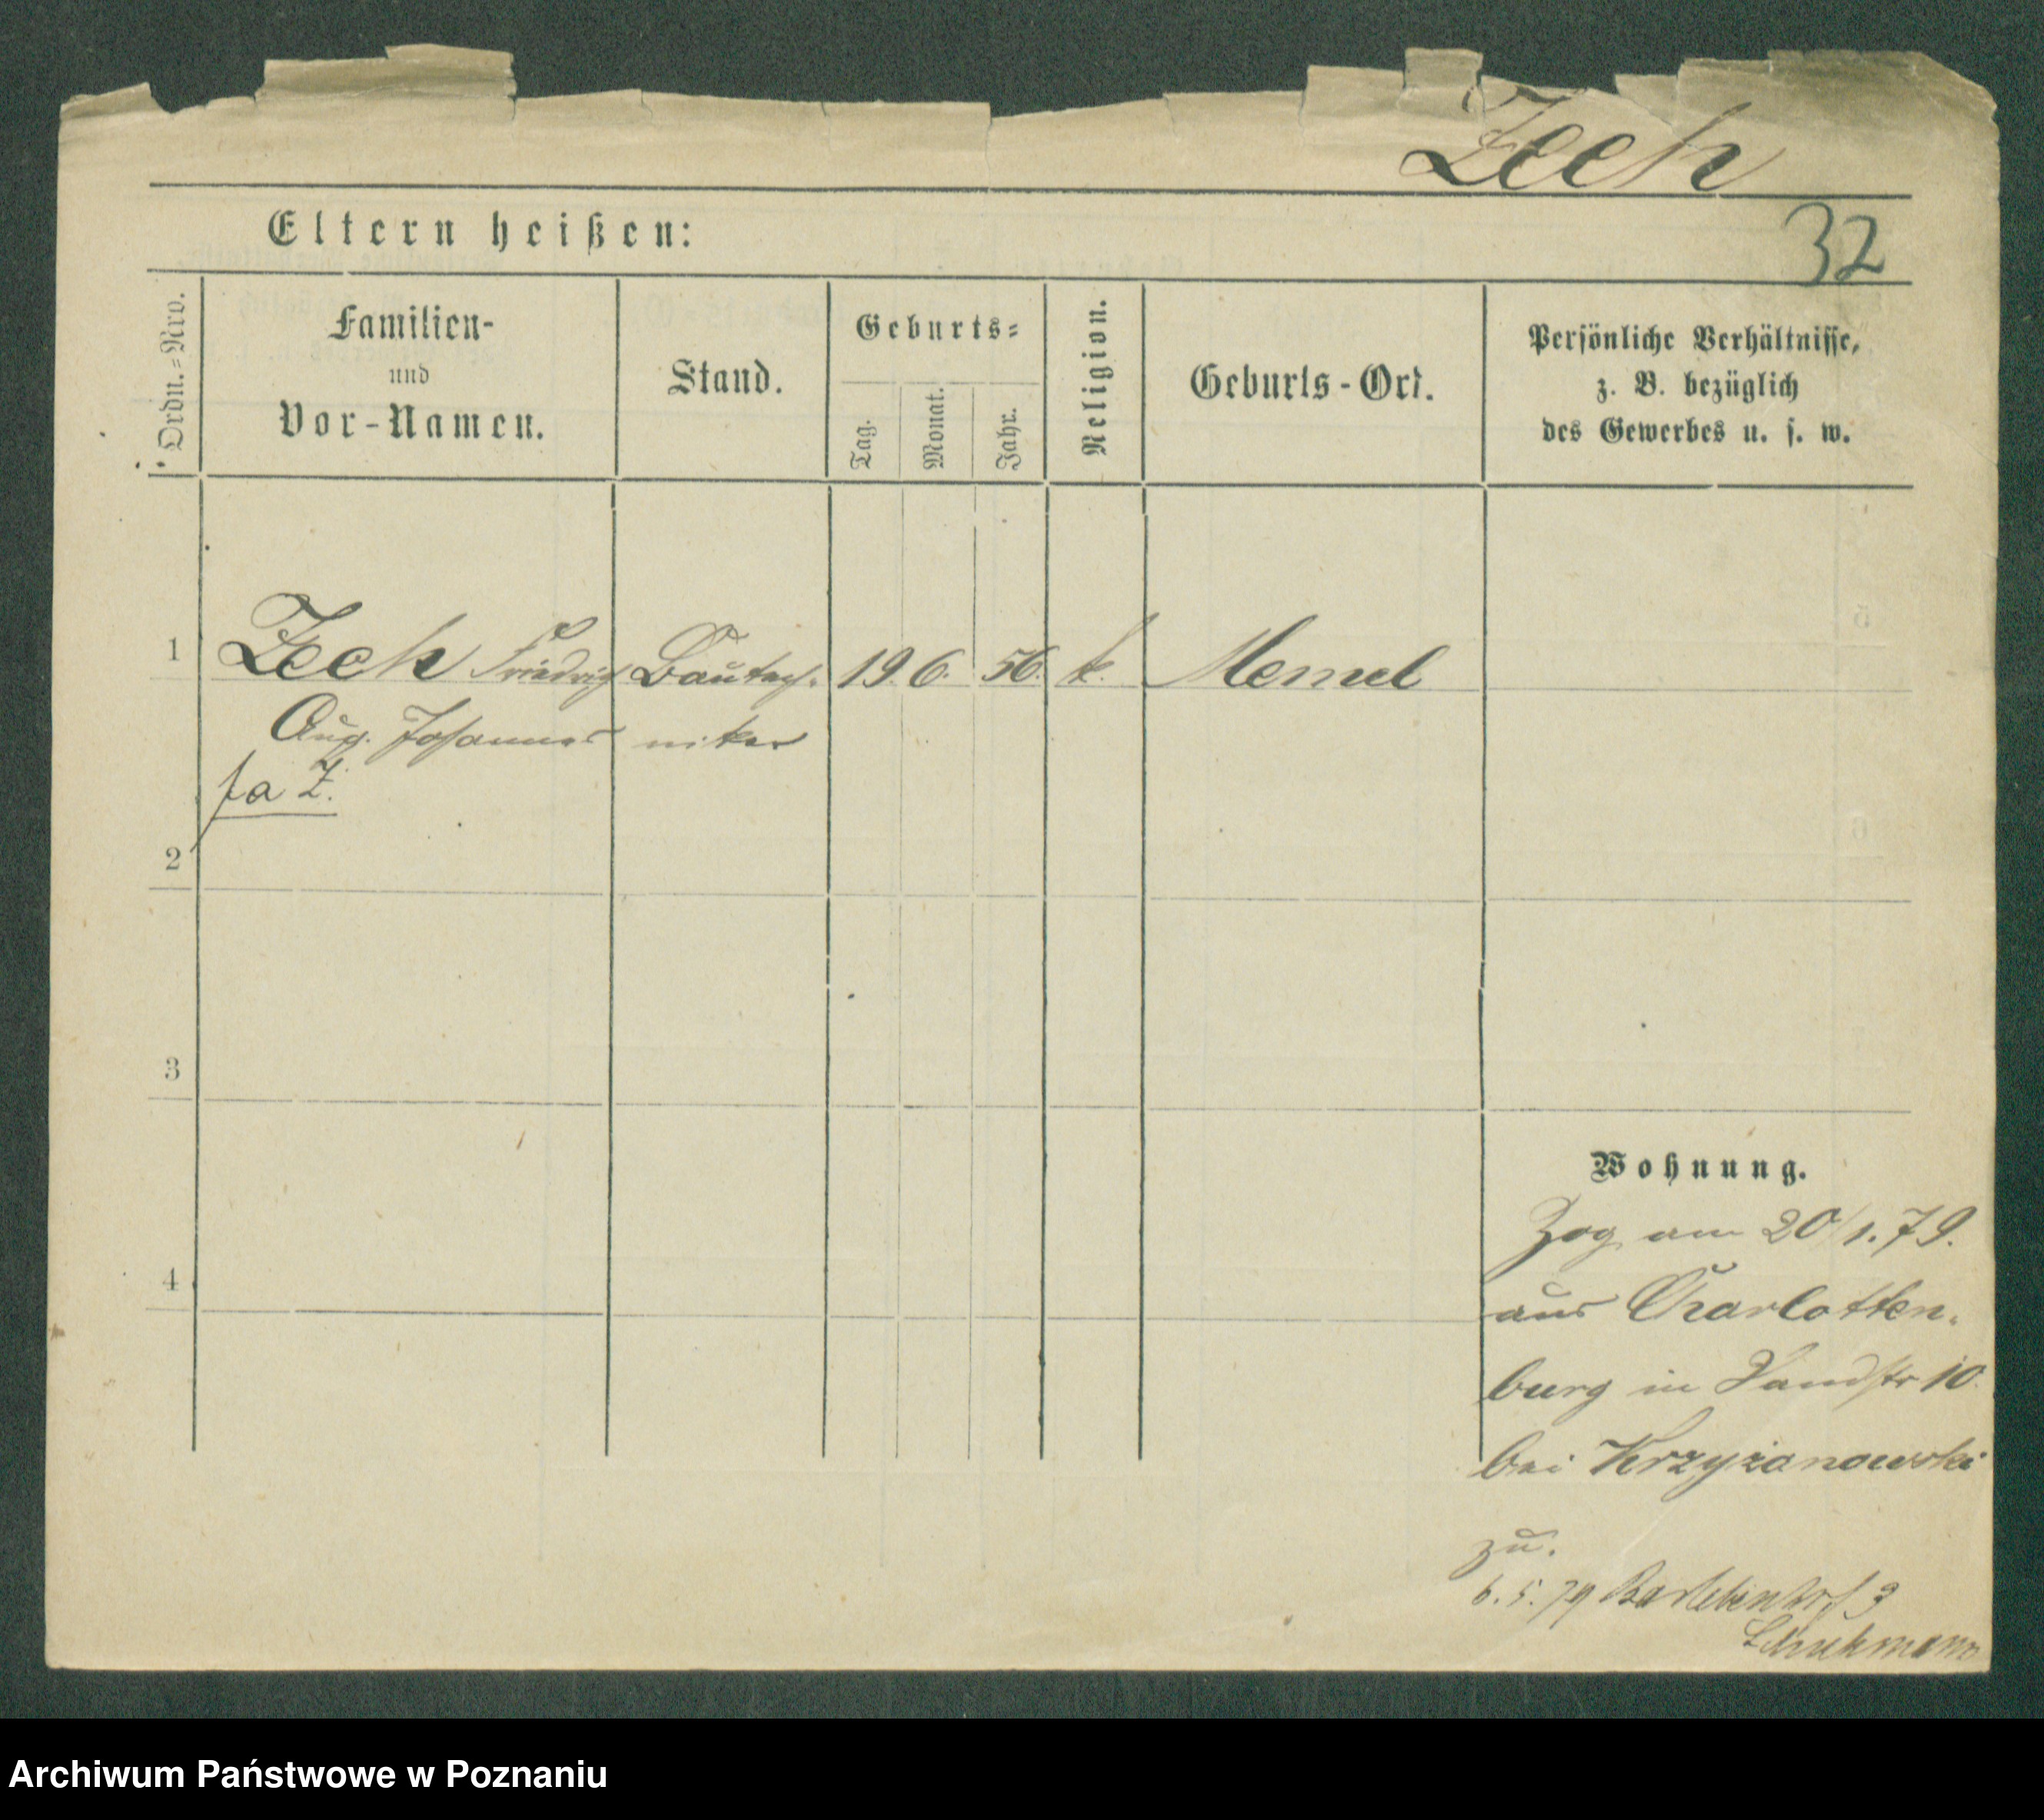 Zech
32
Eltern heißen:
Ordn.=Nro.
Familien-
und
Vor-Namen.
Stand.
Geburts=
Tag.
Monat.
Jahr.
Religion.
Geburts-Ort.
Persönliche Verhältnisse,
z. B. bezüglich
des Gewerbes u. s. w.
1 Zech Friedrich Bautech. 19. 6. 56. k. Memel
Aug. Johannes niker
fa Z.
2
3
4
Wohnung.
Zog am 20/1.79.
aus Charlotten.
burg in Sandstr 10.
bei Krzyżanowski
zu.
6.5.79 3
Archiwum Państwowe w Poznaniu